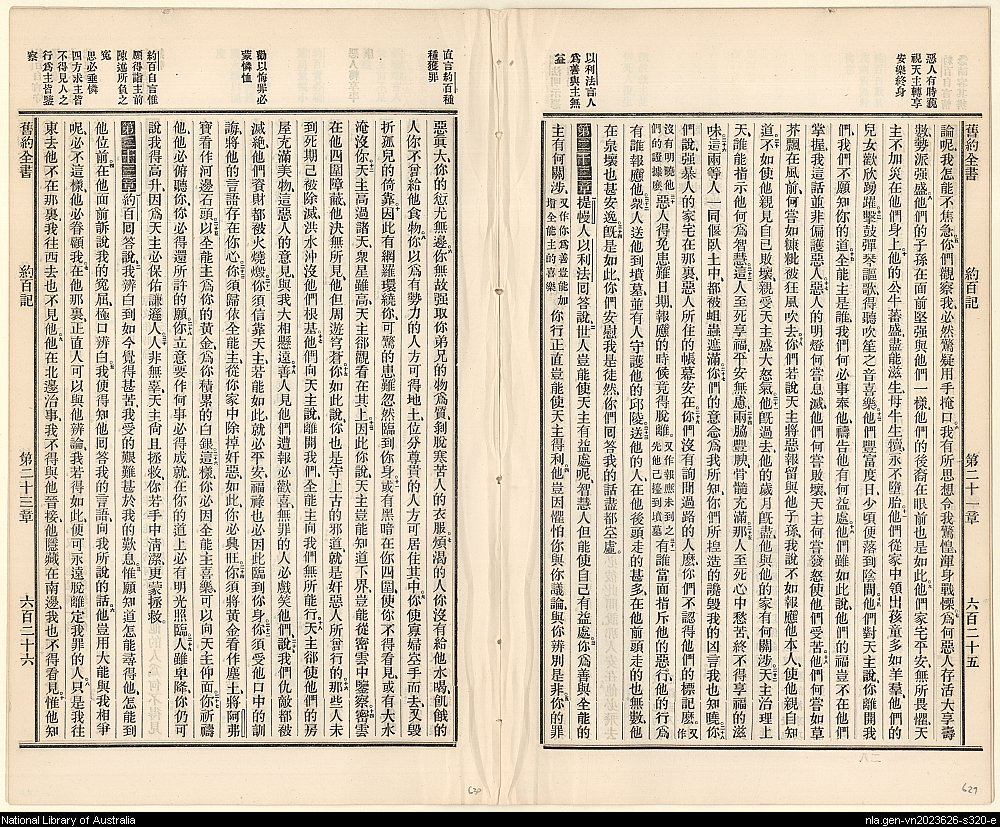 惡人有時藐
視天主轉享
安樂終身
以利法言人
爲善與主無
益
舊約全書 約百記 第二十一章 六百二十五
論呢我怎能不焦急你們觀察我必然驚疑用手掩口我有所思想令我驚惶渾身戰慄爲何惡人存活大享壽
數勢派强盛他們的子孫在面前堅强與他們一樣他們的後裔在眼前也是如此他們家宅平安無所畏懼天
主不加災在他們身上他的公牛蕃盛盡能滋生母牛生犢永不墮胎他們從家中領出孩童多如羊羣他們的
兒女歡欣踴躍擊鼓彈琴謳歌得聽吹笙之音喜樂他們豐富度日少頃便落到陰間他們對天主說你離開我
們我們不願知你的道全能主是誰我們何必事奉他禱告他有何益處他們雖如此說他們的福豈不在他們
掌握我這話並非偏護惡人惡人的明燈何嘗息滅他們何嘗敗壞天主何嘗發怒使他們受苦他們何嘗如草
芥飄在風前何嘗如糠粃被狂風吹去你們若說天主將惡報留與他子孫我說不如報應他本人使他親自知
道不如使他親見自己敗壞親受天主盛大怒氣他旣過去他的歲月旣盡他與他的家有何關涉天主治理上
天誰能指示他何爲智慧這人至死享福平安無慮兩脇豐腴骨髓充滿那人至死心中愁苦終不得享福的滋
味這兩等人一同偃臥土中都被蛆蟲遮滿你們的意念爲我所知你們所揑造的譭謗我的凶言我也知曉你
們說强暴人的家宅在那裏惡人所住的帳幕安在你們沒有詢問過路的人麽你們不認得他們的標記麽又作
沒有明曉他們的證據麽惡人得免患難日期報應的時候竟得脫離又作報應未到之先他已擡到墳墓有誰當面指斥他的惡行他的行爲
有誰報應他衆人送他到墳墓並有人守護他的邱陵送他的人在他後頭走的甚多在他前頭走的也無數他
在泉壤也甚安逸旣是如此你們安慰我是徒然你們回答我的話盡都空虛
第二十二章 提幔人以利法回答說世人豈能使天主有益處呢智慧人但能使自己有益處你爲善與全能的
主有何關涉又作你爲善豈能加增全能主的喜樂你行正直豈能使天主得利他豈因懼怕你與你議論與你辨別是非你的罪
直言約百種
種獲罪
勸以悔罪必
蒙憐恤
約百自言惟
願得詣主前
陳述所負之
寃
思必垂憐
四方求主皆
不得見人之
行爲主皆鑒
察
惡眞大你的愆尤無邊你無故强取你弟兄的物爲質剝脫寒苦人的衣服煩渴的人你沒有給他水喝飢餓的
人你不曾給他食物你以爲有勢力的人方可得地土位分尊貴的人方可居在其中你使寡婦空手而去又毀
折孤兒的倚靠因此有網羅環繞你可驚的患難忽然臨到你身或有黑暗在你四圍使你不得看見或有大水
淹沒你天主高過諸天衆星雖高天主卻觀看在其上因此你說天主豈能知道下界豈能從密雲中鑒察密雲
在他四圍障蔽他決無所見他但周遊穹蒼你如此說你也是守上古的邪道就是奸惡人所曾行的那些人未
到死期已被除滅洪水沖沒他們根基他們向天主說離開我們全能主向我們無所能行天主卻使他們的房
屋充滿美物這惡人的意見與我大相懸遠善人見他們遭報必歡喜無罪的人必戲笑他們說我們仇敵都被
滅絶他們資財都被火燒燬你須信靠天主若能如此就必平安福祿也必因此臨到你身你須受他口中的訓
誨將他的言語存在你心你須歸依全能主從你家中除掉奸惡如此你必興旺你須將黃金看作塵土將阿弗
寶看作河邊石頭以全能主爲你的黃金爲你積累的白銀這樣你必因全能主喜樂可以向天主仰面你祈禱
他他必俯聽你你必得還所許的願你立意要作何事必得成就在你的道上必有明光照臨人雖卑降你仍可
說我得高升因爲天主必保佑謙遜人人非無辜天主尙且拯救你若手中淸潔更蒙拯救
第二十三章 約百回答說我辨白到如今覺得甚苦我受的艱難甚於我的歎息惟願知道怎能尋得他怎能到
他位前在他面前訴說我的寃屈極口辨白我便得知他回答我的言語向我所說的話他豈用大能與我相爭
呢必不這樣他必眷顧我在他那裏正直人可以與他辨論我若得如此便可永遠脫離定我罪的人只是我往
東去他不在那裏我往西去也不見他他在北邊治事我不得與他晉接他隱藏在南邊我也不得看見惟他知
舊約全書 約百記 第二十三章 六百二十六
630
629
National Library of Australia
nla.gen-vn2023626-s320-e